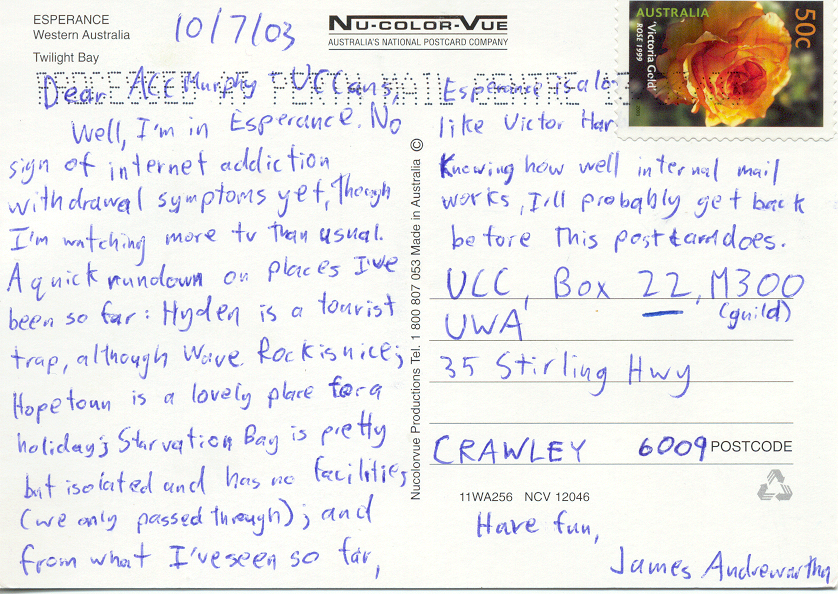 ESPERANCE
Western Australia
Twilight Bay
10/7/03
NU-COLOR-VUE
AUSTRALIA'S NATIONAL POSTCARD COMPANY
AUSTRALIA
50c
'Victoria Gold'
ROSE 1999
Dear ACC Murphy + UCCans,
Well, I'm in Esperance. No
sign of internet addiction
withdrawal symptoms yet, though
I'm watching more tv than usual.
A quick rundown on places I've
been so far: Hyden is a tourist
trap, although Wave Rock is nice;
Hopetoun is a lovely place for a
holiday; Starvation Bay is pretty
but isolated and has no facilities
(we only passed through); and
from what I've seen so far,
Esperance is a lo
like Victor Har
Knowing how well internal mail
works, I'll probably get back
before this postcard does.
UCC, Box 22, M300
(guild)
UWA
35 Stirling Hwy
CRAWLEY 6009 POSTCODE
11WA256 NCV 12046
Have fun,
James Andrewartha
Nucolorvue Productions Tel. 1 800 807 053 Made in Australia ©